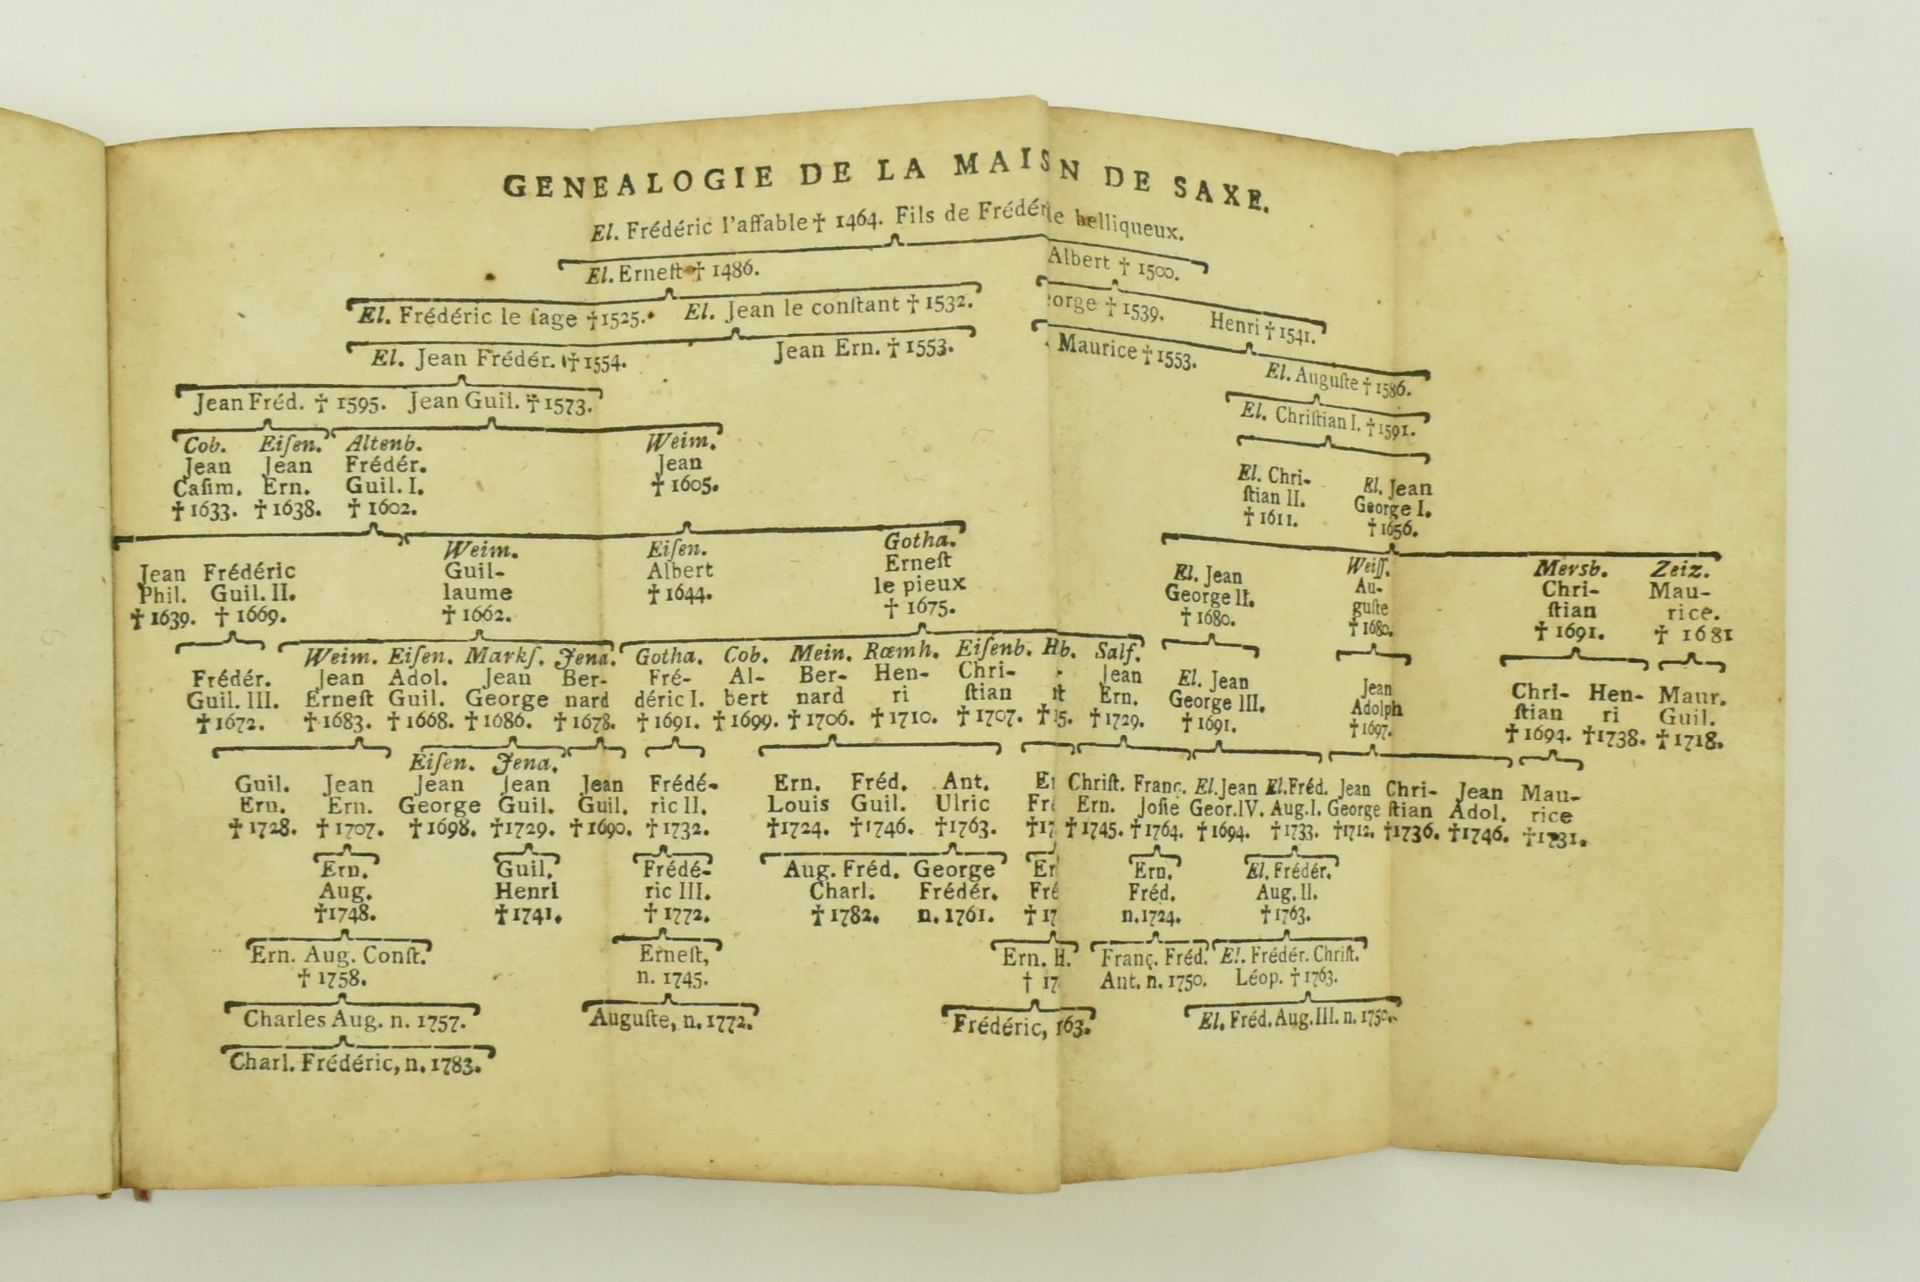 GENEALOGIE DE LA MAIS N DE SAXE.
El. Frédéric l'affable † 1464. Fils de Frédér le belliqueux.
El. Erneſt † 1486. Albert † 1500.
El. Frédéric le ſage † 1525. El. Jean le conſtant † 1532. orge † 1539. Henri † 1541.
El. Jean Frédér. † 1554. Jean Ern. † 1553. Maurice † 1553. El. Auguſte † 1586.
Jean Fréd. † 1595. Jean Guil. † 1573. El. Chriſtian I. † 1591.
Cob. Eiſen. Altenb. Weim.
Jean Jean Frédér. Jean
Caſim. Ern. Guil. I. † 1605.
† 1633. † 1638. † 1602.
El. Chri- El. Jean
ſtian II. George I.
† 1611. † 1656.
Weim. Eiſen. Gotha. Weiſſ. Mersb. Zeiz.
Jean Frédéric Guil- Albert Erneſt El. Jean Au- Chri- Mau-
Phil. Guil. II. laume † 1644. le pieux George II. guſte ſtian rice.
† 1639. † 1669. † 1662. † 1675. † 1680. † 1680. † 1691. † 1681
Weim. Eiſen. Markſ. Jena. Gotha. Cob. Mein. Rœmh. Eiſenb. Hb. Salf.
Frédér. Jean Adol. Jean Ber- Fré- Al- Ber- Hen- Chri- Jean El. Jean Jean Chri- Hen- Maur.
Guil. III. Erneſt Guil. George nard déric I. bert nard ri ſtian Ern. George III. Adolph ſtian ri Guil.
† 1672. † 1683. † 1668. † 1686. † 1678. † 1691. † 1699. † 1706. † 1710. † 1707. † 5. † 1729. † 1691. † 1697. † 1694. † 1738. † 1718.
Eiſen. Jena.
Guil. Jean Jean Jean Jean Frédé- Ern. Fréd. Ant. Chriſt. Franç. El. Jean El. Fréd. Jean Chri- Jean Mau-
Ern. Ern. George Guil. Guil. ric II. Louis Guil. Ulric Ern. Joſié Geor. IV. Aug. I. George ſtian Adol. rice
† 1728. † 1707. † 1698. † 1729. † 1690. † 1732. † 1724. † 1746. † 1763. † 17 † 1745. † 1764. † 1694. † 1733. † 1712. † 1736. † 1746. † 1731.
Ern. Guil. Frédé- Aug. Fréd. George Er Ern. El. Frédér.
Aug. Henri ric III. Charl. Frédér. Fré Fréd. Aug. II.
† 1748. † 1741. † 1772. † 1782. n. 1761. † 17 n. 1724. † 1763.
Ern. Aug. Conſt. Erneſt, Ern. H. Franç. Fréd. El. Frédér. Chriſt.
† 1758. n. 1745. † 17 Ant. n. 1750. Léop. † 1763.
Charles Aug. n. 1757. Auguſte, n. 1772. Frédéric, 163. El. Fréd. Aug. III. n. 1750.
Charl. Frédéric, n. 1783.